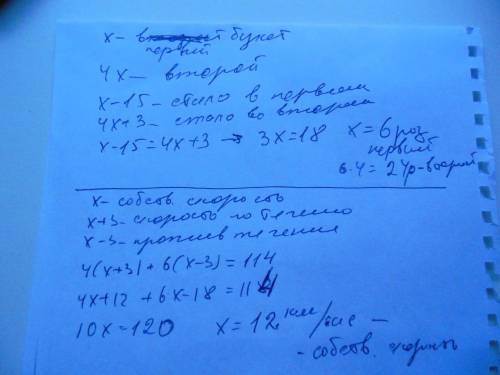 x – букет
первый
4x – второй
x-15 – стало в первом
4x+3 – стало во втором
x-15=4x+3 → 3x=18 x=6 роз
первый
6·4=24р-второй
x – собств. скорость
x+3 – скорость по течению
x-3 – против течения
4(x+3)+6(x-3)=114
4x+12+6x-18=114
10x=120 x=12 км/час –
– собств. скорость